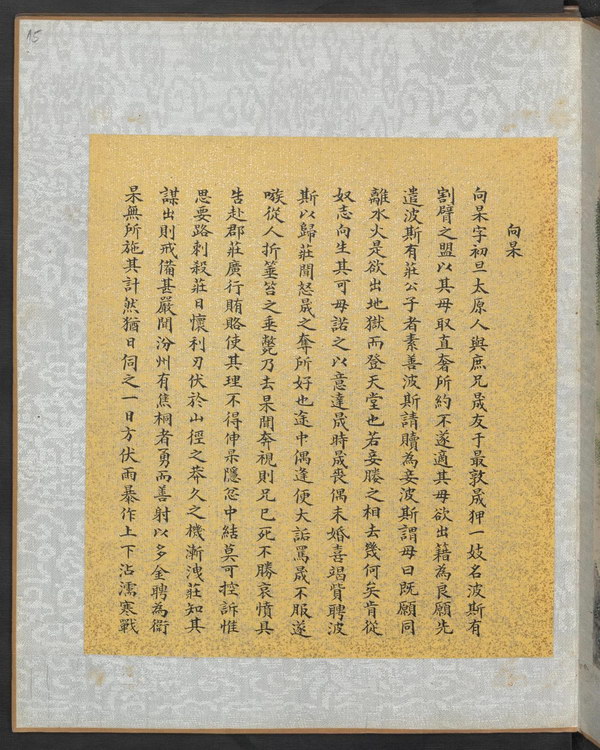 向杲
向杲字初旦太原人與庶兄晟友于最敦晟狎一妓名波斯有
割臂之盟以其母取直奢所約不遂適其母欲出籍為良願先
遣波斯有莊公子者素善波斯請贖為妾波斯謂母曰既願同
離水火是欲出地獄而登天堂也若妾媵之相去幾何矣肯從
奴志向生其可母諾之以意達晟時晟喪偶未婚喜竭貲聘波
斯以歸莊聞怒晟之奪所好也途中偶逢便大詬罵晟不服遂
嗾從人折箠笞之垂斃乃去杲聞奔視則兄已死不勝哀憤具
告赴郡莊廣行賄賂使其理不得伸杲隱忿中結莫可控訴惟
思要路刺殺莊日懷利刃伏於山徑之莽久之機漸洩莊知其
謀出則戒備甚嚴聞汾州有焦桐者勇而善射以多金聘為衛
杲無所施其計然猶日伺之一日方伏雨暴作上下沾濡寒戰